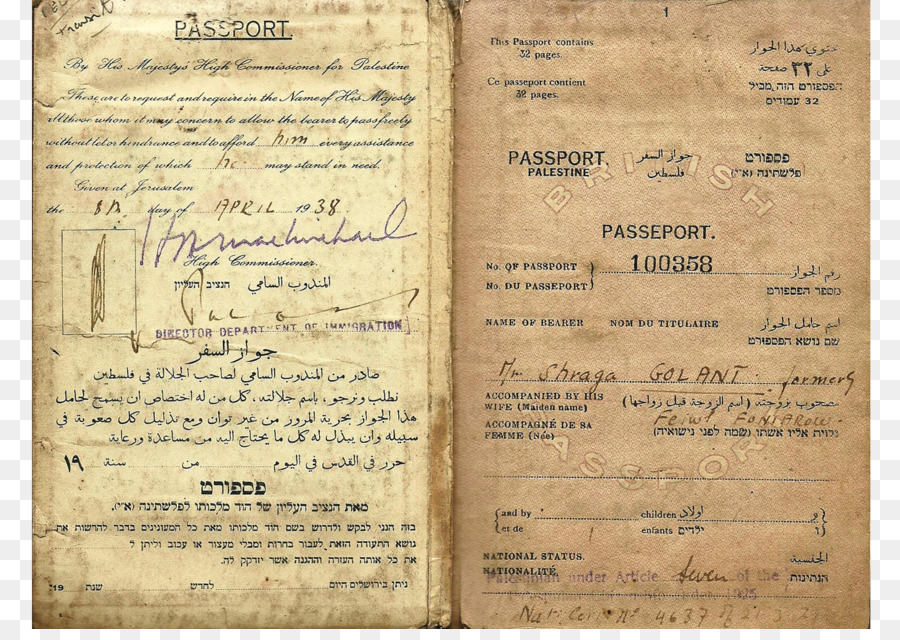 Transit
PASSPORT.
By His Majesty's High Commissioner for Palestine
These are to request and require in the Name of His Majesty
all those whom it may concern to allow the bearer to pass freely
without let or hindrance and to afford him every assistance
and protection of which he may stand in need.
Given at Jerusalem
the 8th day of APRIL 1938
High Commissioner.
المندوب السامي הנציב העליון
DIRECTOR DEPARTMENT OF IMMIGRATION
جواز السفر
صادر من المندوب السامي لصاحب الجلالة في فلسطين
نطلب ونرجو، باسم جلالته، كل من له اختصاص ان يسمح لحامل
هذا الجواز بحرية المرور من غير توان ومع تذليل كل صعوبة في
سبيله وان يبذل له كل ما يحتاج اليه من مساعدة ورعاية
حرر في القدس في اليوم من سنة ١٩
פספורט
מאת הנציב העליון של הוד מלכותו לפלשתינה (א"י).
בזה הנני לבקש ולדרוש בשם הוד מלכותו מאת כל המעונינים בדבר להרשות את
נושא התעודה הזאת לעבור בחרות ומבלי מעצור או עכוב וליתן ל
את כל אותה העזרה וההגנה אשר יזדקק לה.
ניתן בירושלים היום לחדש שנת 19
1
This Passport contains
32 pages.
يحتوي هذا الجواز
على ٣٢ صفحة
Ce passeport contient
32 pages.
הפספורט הזה מכיל
32 עמודים
BRITISH
PASSPORT. جواز السفر פספורט
PALESTINE فلسطين פלשתינה (א"י)
PASSEPORT.
No. OF PASSPORT 100358 رقم الجواز
No. DU PASSEPORT מספר הפספורט
NAME OF BEARER NOM DU TITULAIRE اسم حامل الجواز
שם נושא הפספורט
Mr Shraga GOLANT formerly
ACCOMPANIED BY HIS
WIFE (Maiden name)
مصحوب بزوجته (اسم الزوجة قبل زواجها)
ACCOMPAGNÉ DE SA
FEMME (Née)
נלוית אליו אשתו (שמה לפני נישואיה)
PASSPORT
and by children اولاد و
et de enfants ילדים
NATIONAL STATUS. الجنسية
NATIONALITÉ. הנתינות
Palestinian under Article Seven of the
Nat. Cert. No 4637 of